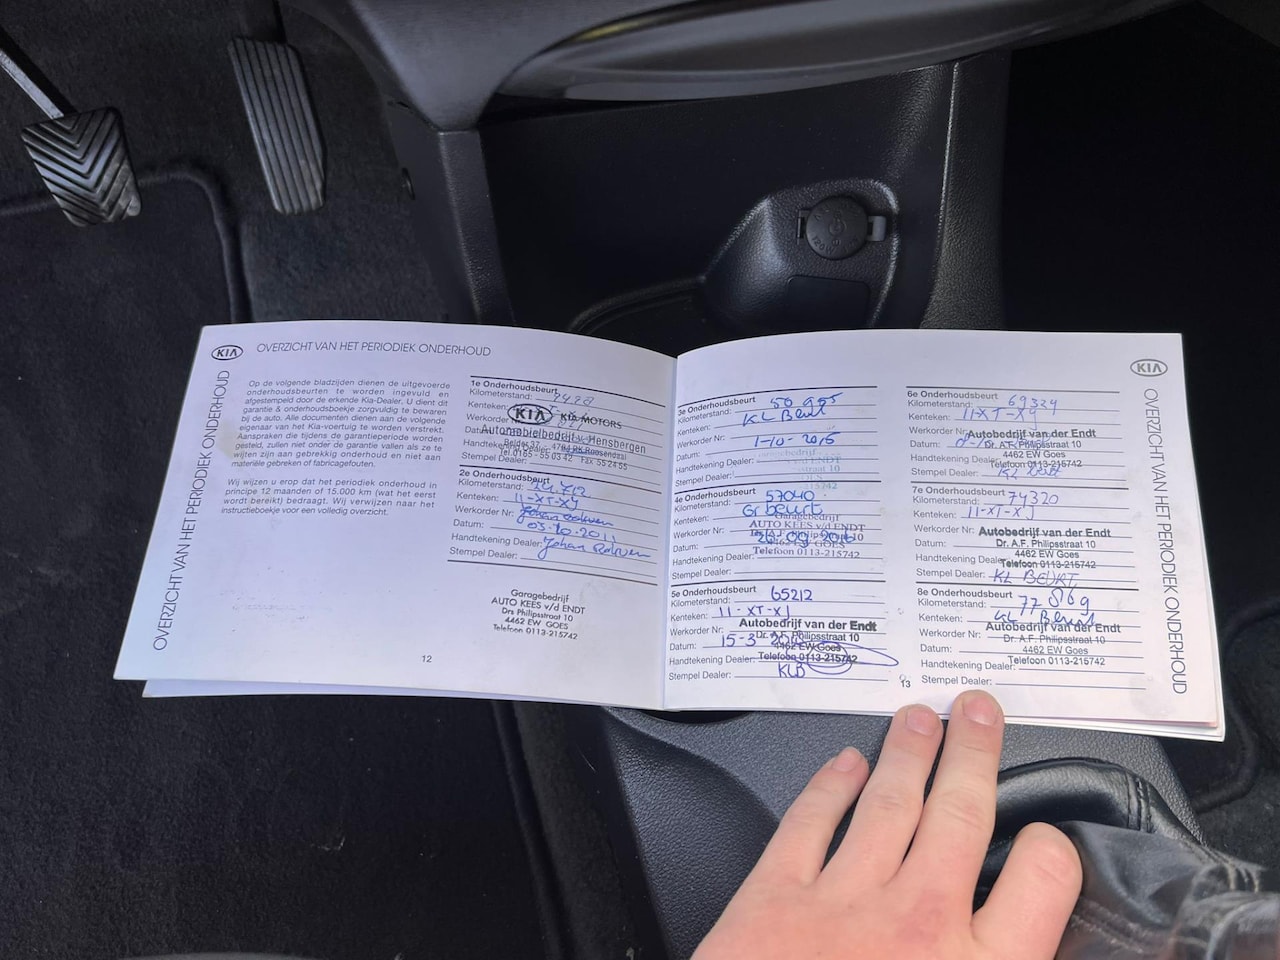 KIA
OVERZICHT VAN HET PERIODIEK ONDERHOUD
OVERZICHT VAN HET PERIODIEK ONDERHOUD
Op de volgende bladzijden dienen de uitgevoerde
onderhoudsbeurten te worden ingevuld en
afgestempeld door de erkende Kia-Dealer. U dient dit
garantie & onderhoudsboekje zorgvuldig te bewaren
bij de auto. Alle documenten dienen aan de volgende
eigenaar van het Kia-voertuig te worden verstrekt.
Aanspraken die tijdens de garantieperiode worden
gesteld, zullen niet onder de garantie vallen als ze te
wijten zijn aan gebrekkig onderhoud en niet aan
materiële gebreken of fabricagefouten.
Wij wijzen u erop dat het periodiek onderhoud in
principe 12 maanden of 15.000 km (wat het eerst
wordt bereikt) bedraagt. Wij verwijzen naar het
instructieboekje voor een volledig overzicht.
1e Onderhoudsbeurt
Kilometerstand:
Kenteken:
KIA KIA MOTORS
Werkorder
Automobielbedrijf v. Hensbergen
Handtekening Dealer:
Tel. 0165 - 55 03 42 Fax 55 24 55
Stempel Dealer:
2e Onderhoudsbeurt
Kilometerstand:
Kenteken: 11-XT-XJ
Werkorder Nr:
Datum: 03-10-2011
Handtekening Dealer: Johan
Stempel Dealer:
Garagebedrijf
AUTO KEES v/d ENDT
Drs Philipsstraat 10
4462 EW GOES
Telefoon 0113-215742
12
3e Onderhoudsbeurt
Kilometerstand: 50
Kenteken: KL Beurt
Werkorder Nr:
Datum: 1-10-2015
Handtekening Dealer:
Stempel Dealer:
4e Onderhoudsbeurt
Kilometerstand: 57040
Kenteken: Gr beurt
Garagebedrijf
Werkorder Nr: AUTO KEES v/d ENDT
Datum:
Handtekening Dealer: Telefoon 0113-215742
Stempel Dealer:
5e Onderhoudsbeurt
Kilometerstand: 65212
Kenteken: 11-XT-XJ
Werkorder Nr: Autobedrijf van der Endt
Datum: 15-3 Dr. A.F. Philipsstraat 10
4462 EW Goes
Handtekening Dealer: Telefoon 0113-215742
Stempel Dealer: KLB
13
KIA
OVERZICHT VAN HET PERIODIEK ONDERHOUD
6e Onderhoudsbeurt
Kilometerstand: 69324
Kenteken: 11-XT-XJ
Werkorder Nr: Autobedrijf van der Endt
Datum: Dr. A.F. Philipsstraat 10
4462 EW Goes
Handtekening Dealer: Telefoon 0113-215742
Stempel Dealer:
7e Onderhoudsbeurt
Kilometerstand: 74320
Kenteken: 11-XT-XJ
Werkorder Nr: Autobedrijf van der Endt
Datum: Dr. A.F. Philipsstraat 10
4462 EW Goes
Handtekening Dealer: Telefoon 0113-215742
Stempel Dealer: KL BEURT
8e Onderhoudsbeurt
Kilometerstand: 77
Kenteken: KL Beurt
Werkorder Nr: Autobedrijf van der Endt
Dr. A.F. Philipsstraat 10
Datum: 4462 EW Goes
Handtekening Dealer: Telefoon 0113-215742
Stempel Dealer: